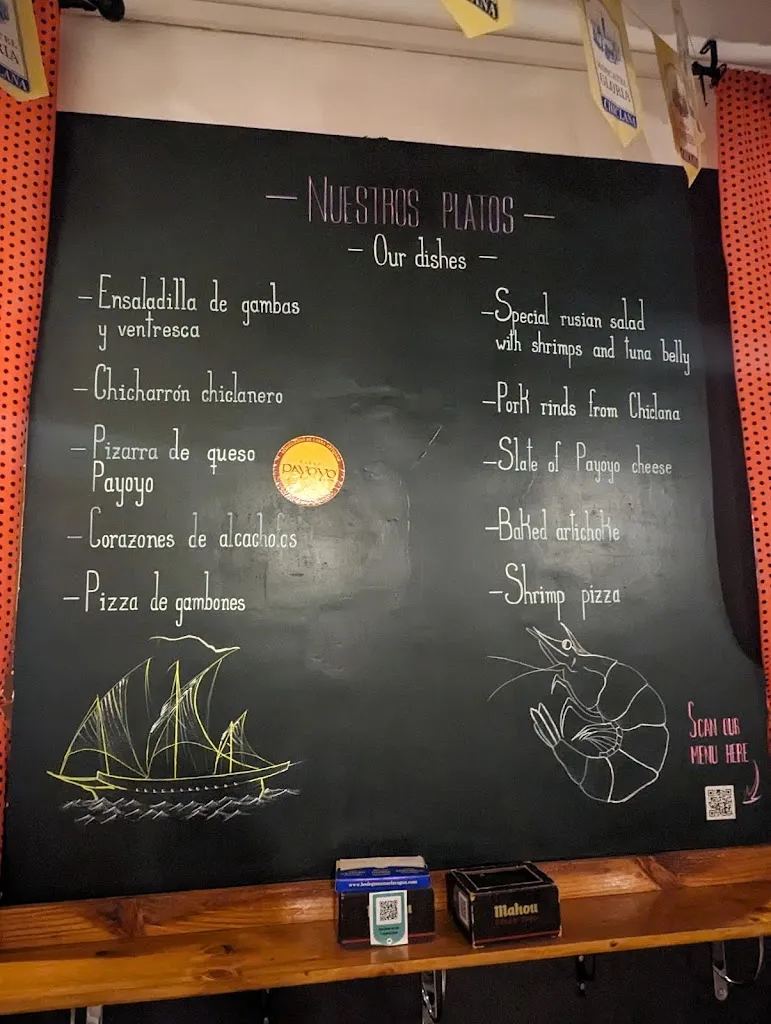 — NUESTROS PLATOS —
— Our dishes —
— Ensaladilla de gambas
y ventresca
— Chicharrón chiclanero
— Pizarra de queso
Payoyo
— Corazones de alcachofas
— Pizza de gambones
PAYOYO
— Special rusian salad
with shrimps and tuna belly
— Pork rinds from Chiclana
— Slate of Payoyo cheese
— Baked artichoke
— Shrimp pizza
SCAN OUR
MENU HERE
Mahou
CHICLANA